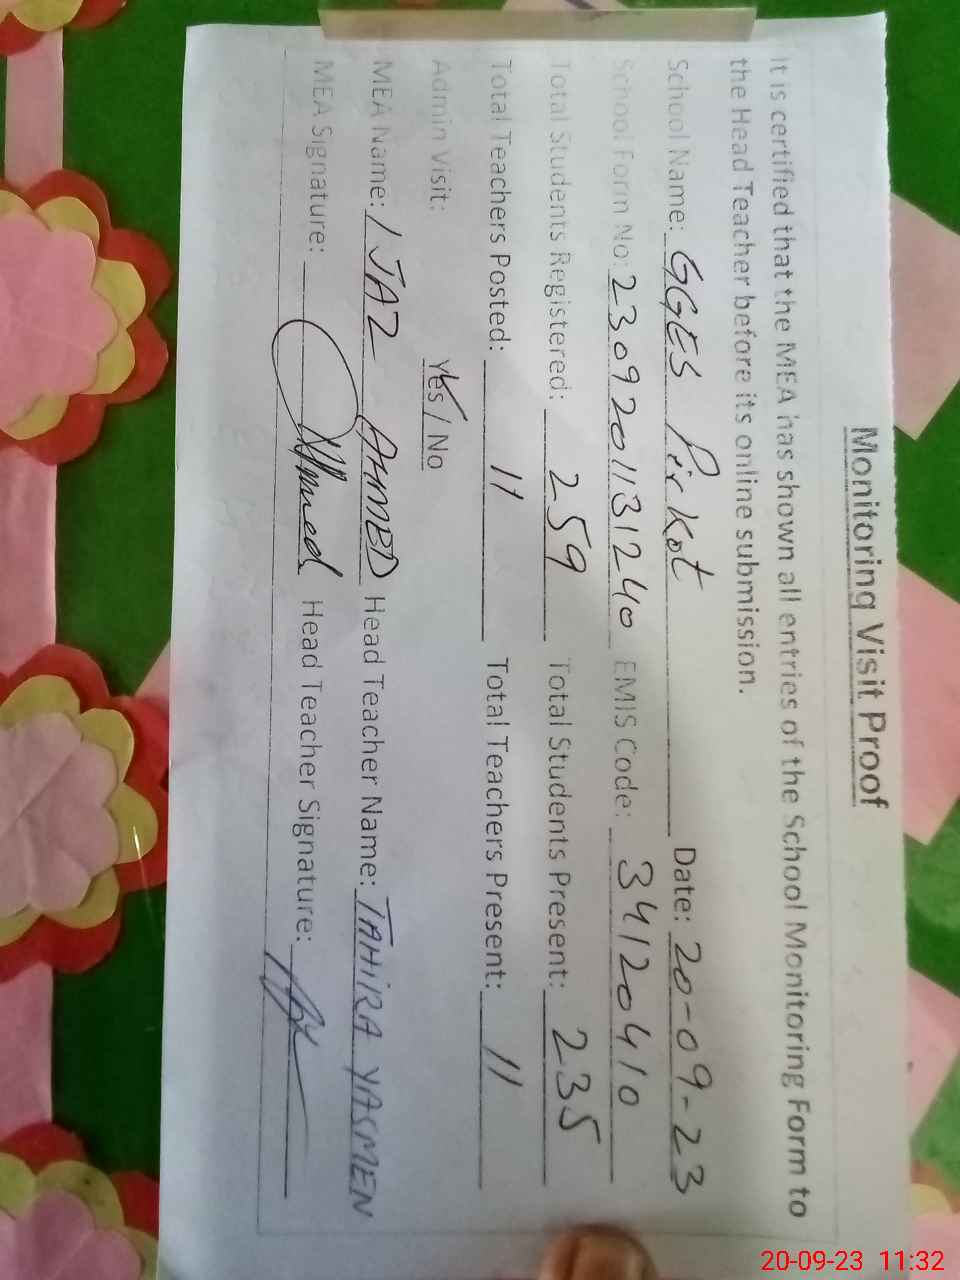 Monitoring Visit Proof
It is certified that the MEA has shown all entries of the School Monitoring Form to
the Head Teacher before its online submission.
School Name: GGES Pirkot Date: 20-09-23
School Form No: 2309201131240 EMIS Code: 34120410
Total Students Registered: 259 Total Students Present: 235
Total Teachers Posted: 11 Total Teachers Present: 11
Admin Visit: Yes / No
MEA Name: IJAZ AHMED Head Teacher Name: TAHIRA YASMEN
MEA Signature: Ahmed Head Teacher Signature:
20-09-23 11:32